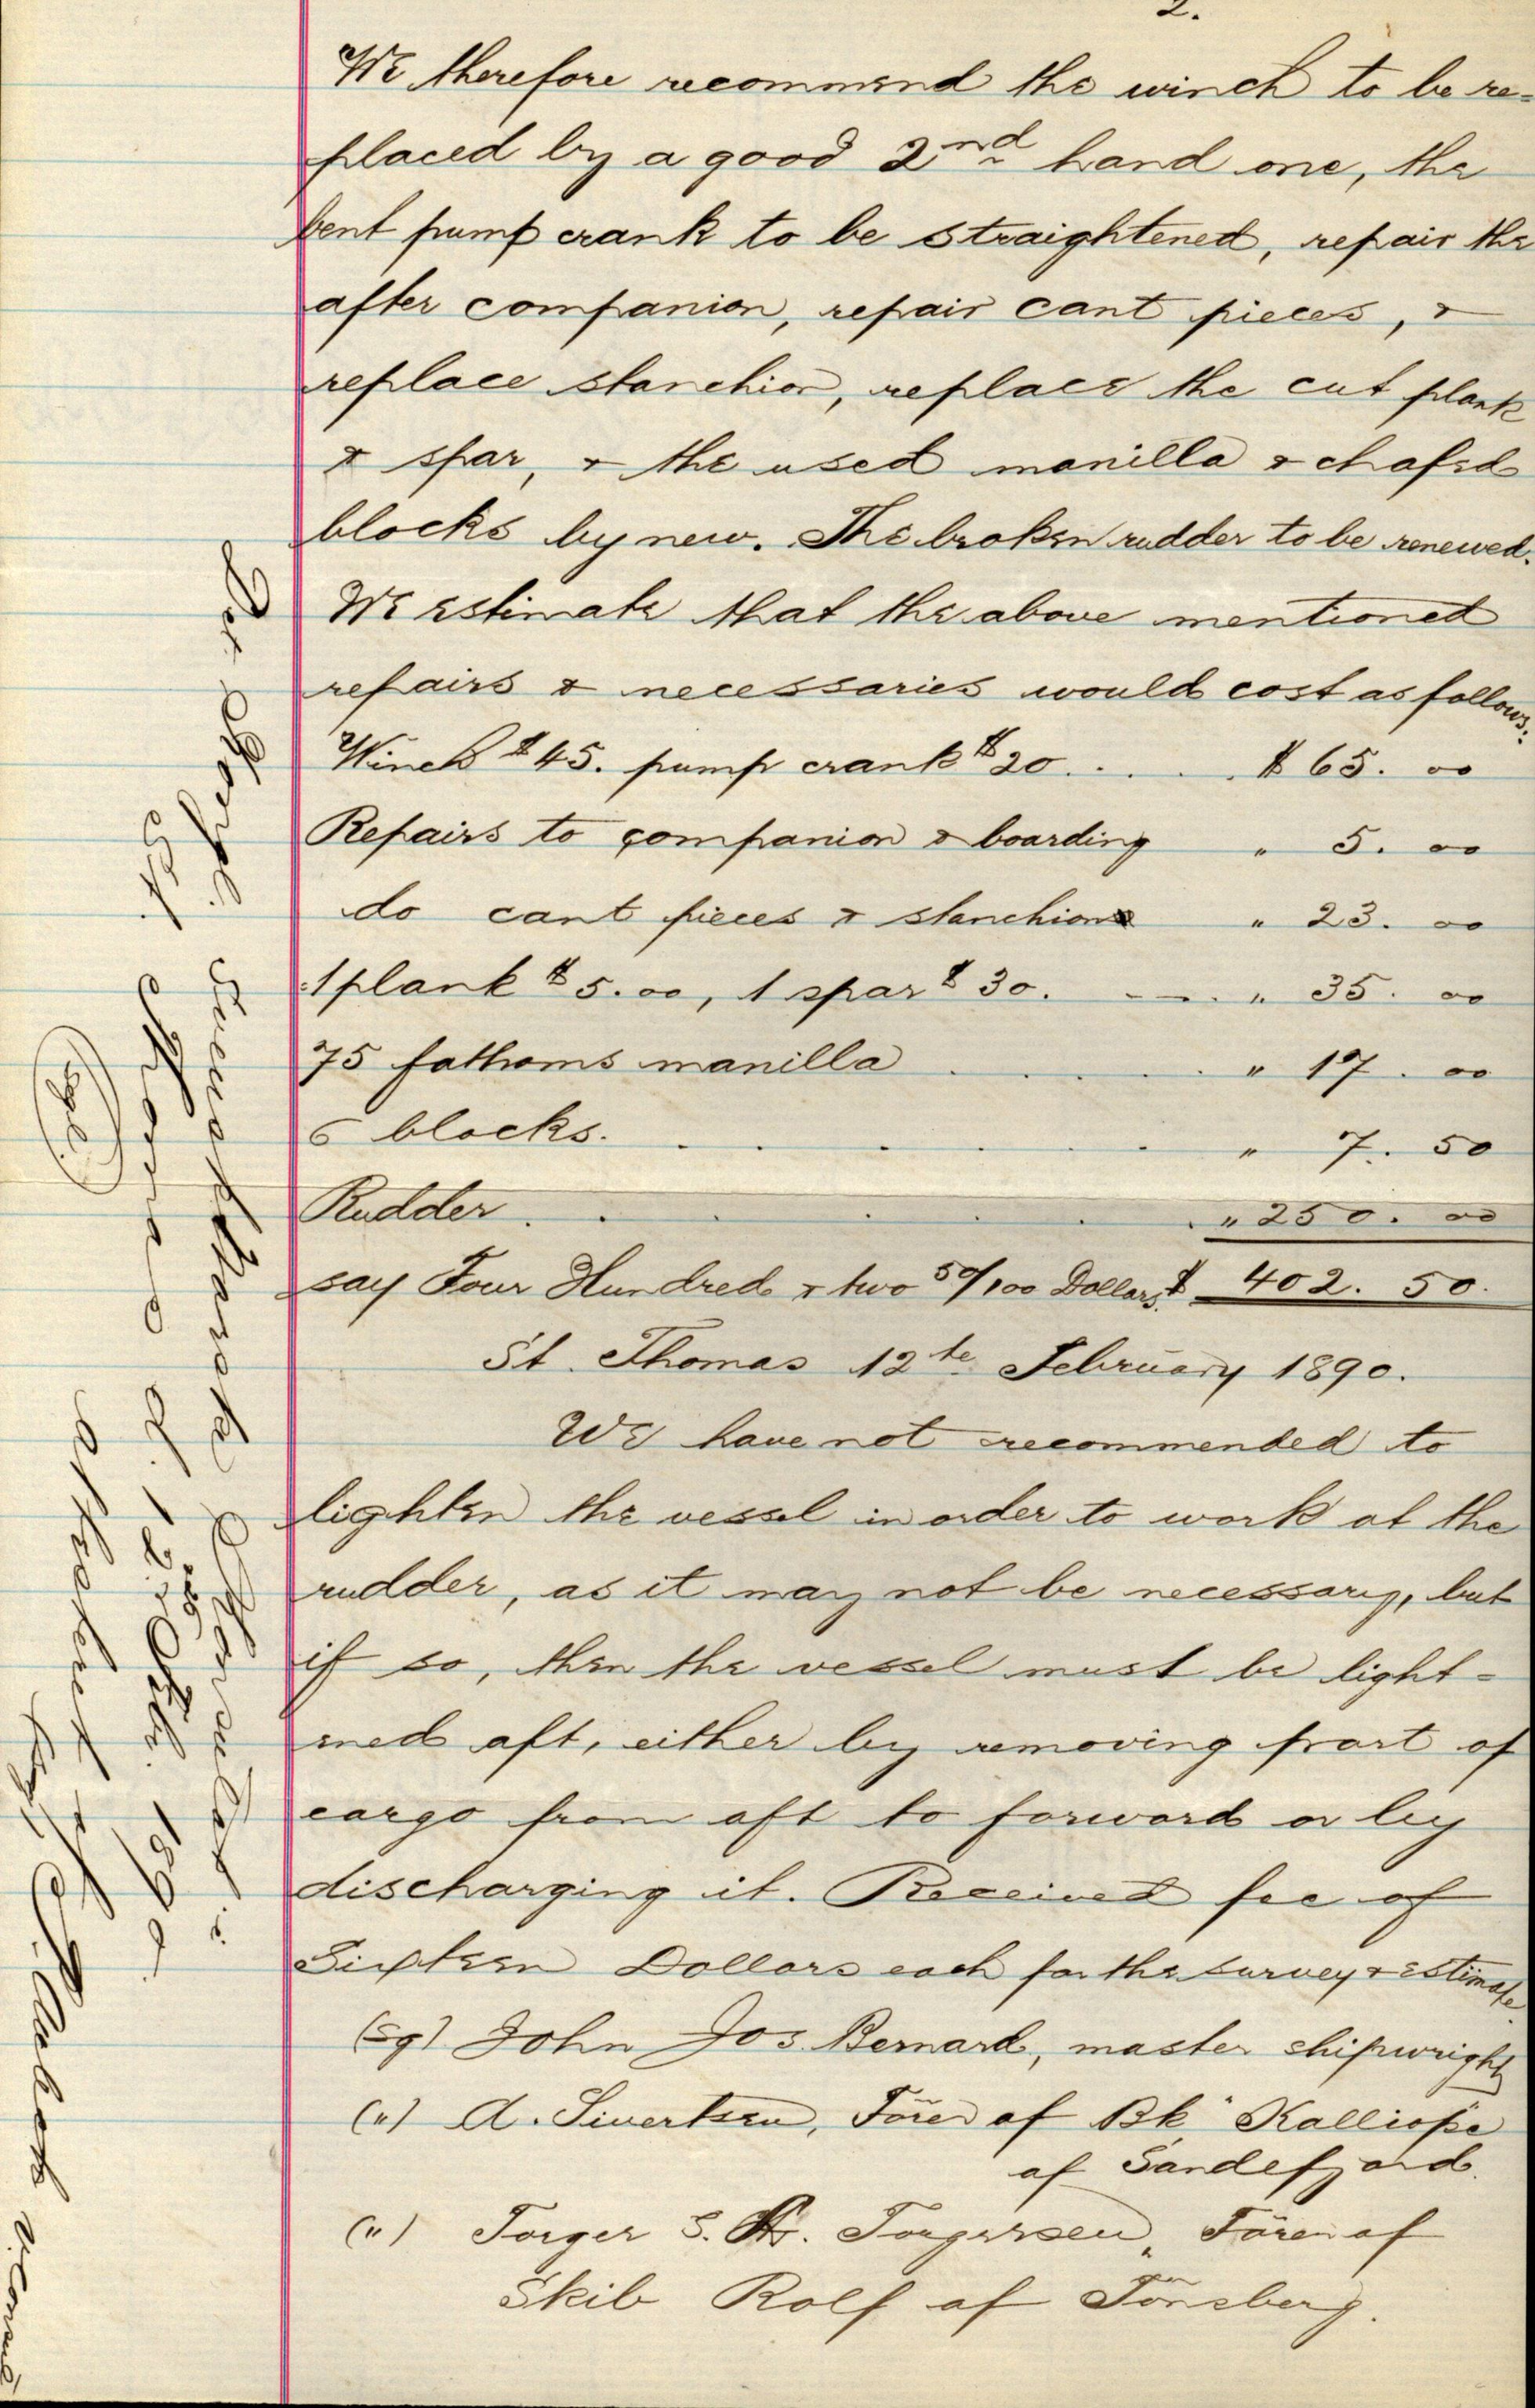 2.
We therefore recommend the winch to be re-
placed by a good 2nd hand one, the
bent pump crank to be straightened, repair the
after companion, repair cant pieces, &
replace stanchion, replace the cut plank
& spar, & the used manilla & chafed
blocks by new. The broken rudder to be renewed.
We estimate that the above mentioned
repairs & necessaries would cost as follows:
Winch $45. pump crank $20. . . . $ 65. 00
Repairs to companion & boarding " 5. 00
do cant pieces & stanchions " 23. 00
1 plank $5.00, 1 spar $30. " 35. 00
75 fathoms manilla . . . . " 17. 00
6 blocks. . . . . . " 7. 50
Rudder . . . . . . . " 250. 00
say Four Hundred & two 50/100 Dollars $ 402. 50.
St. Thomas 12te February 1890.
We have not recommended to
lighten the vessel in order to work at the
rudder, as it may not be necessary, but
if so, then the vessel must be light-
ened aft, either by removing part of
cargo from aft to forward or by
discharging it. Received fee of
Sixteen Dollars each for the survey & estimate.
(sg) John Jos. Bernard, master shipwright
(") A. Sivertsen, Förer af Bk "Kalliope
af Sandefjord.
(") Torger S. Torgersen, Fören af
Skib Rolf af Tönsberg.
Norske Consulat i
St. Thomas d. 12 Feb. 1890
attesteret
v. Consul